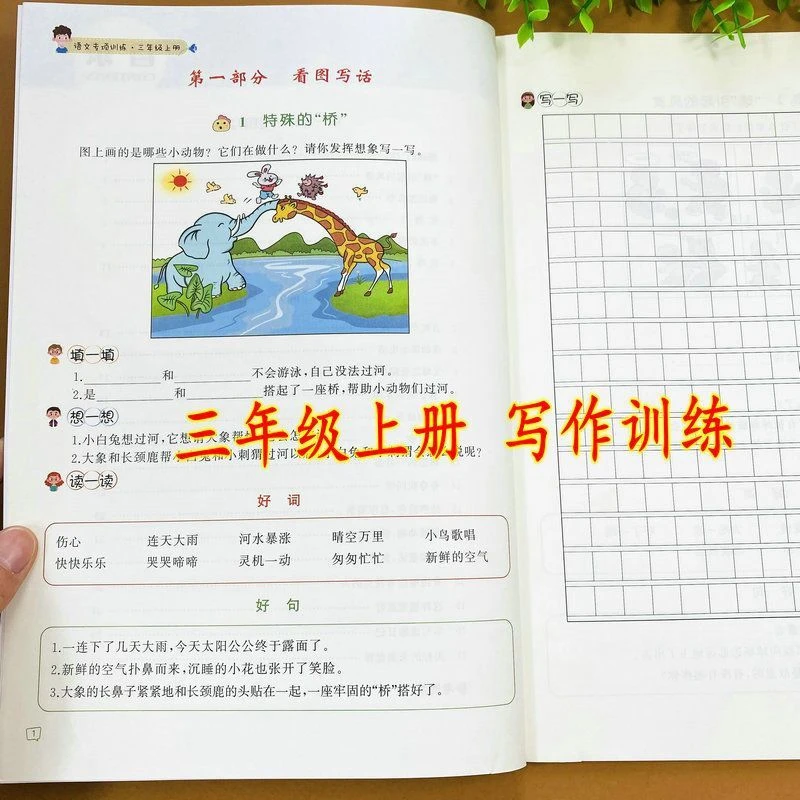 语文专项训练·三年级上册
第一部分 看图写话
1 特殊的“桥”
图上画的是哪些小动物？它们在做什么？请你发挥想象写一写。
填一填
1. 和 不会游泳，自己没法过河。
2.是 和 搭起了一座桥，帮助小动物们过河。
想一想
1.小白兔想过河，它想请大象帮
2.大象和长颈鹿帮小白兔和小刺猬过河以
说呢？
三年级上册 写作训练
读一读
好 词
伤心 连天大雨 河水暴涨 晴空万里 小鸟歌唱
快快乐乐 哭哭啼啼 灵机一动 匆匆忙忙 新鲜的空气
好 句
1.一连下了几天大雨，今天太阳公公终于露面了。
2.新鲜的空气扑鼻而来，沉睡的小花也张开了笑脸。
3.大象的长鼻子紧紧地和长颈鹿的头贴在一起，一座牢固的“桥”搭好了。
1
写一写